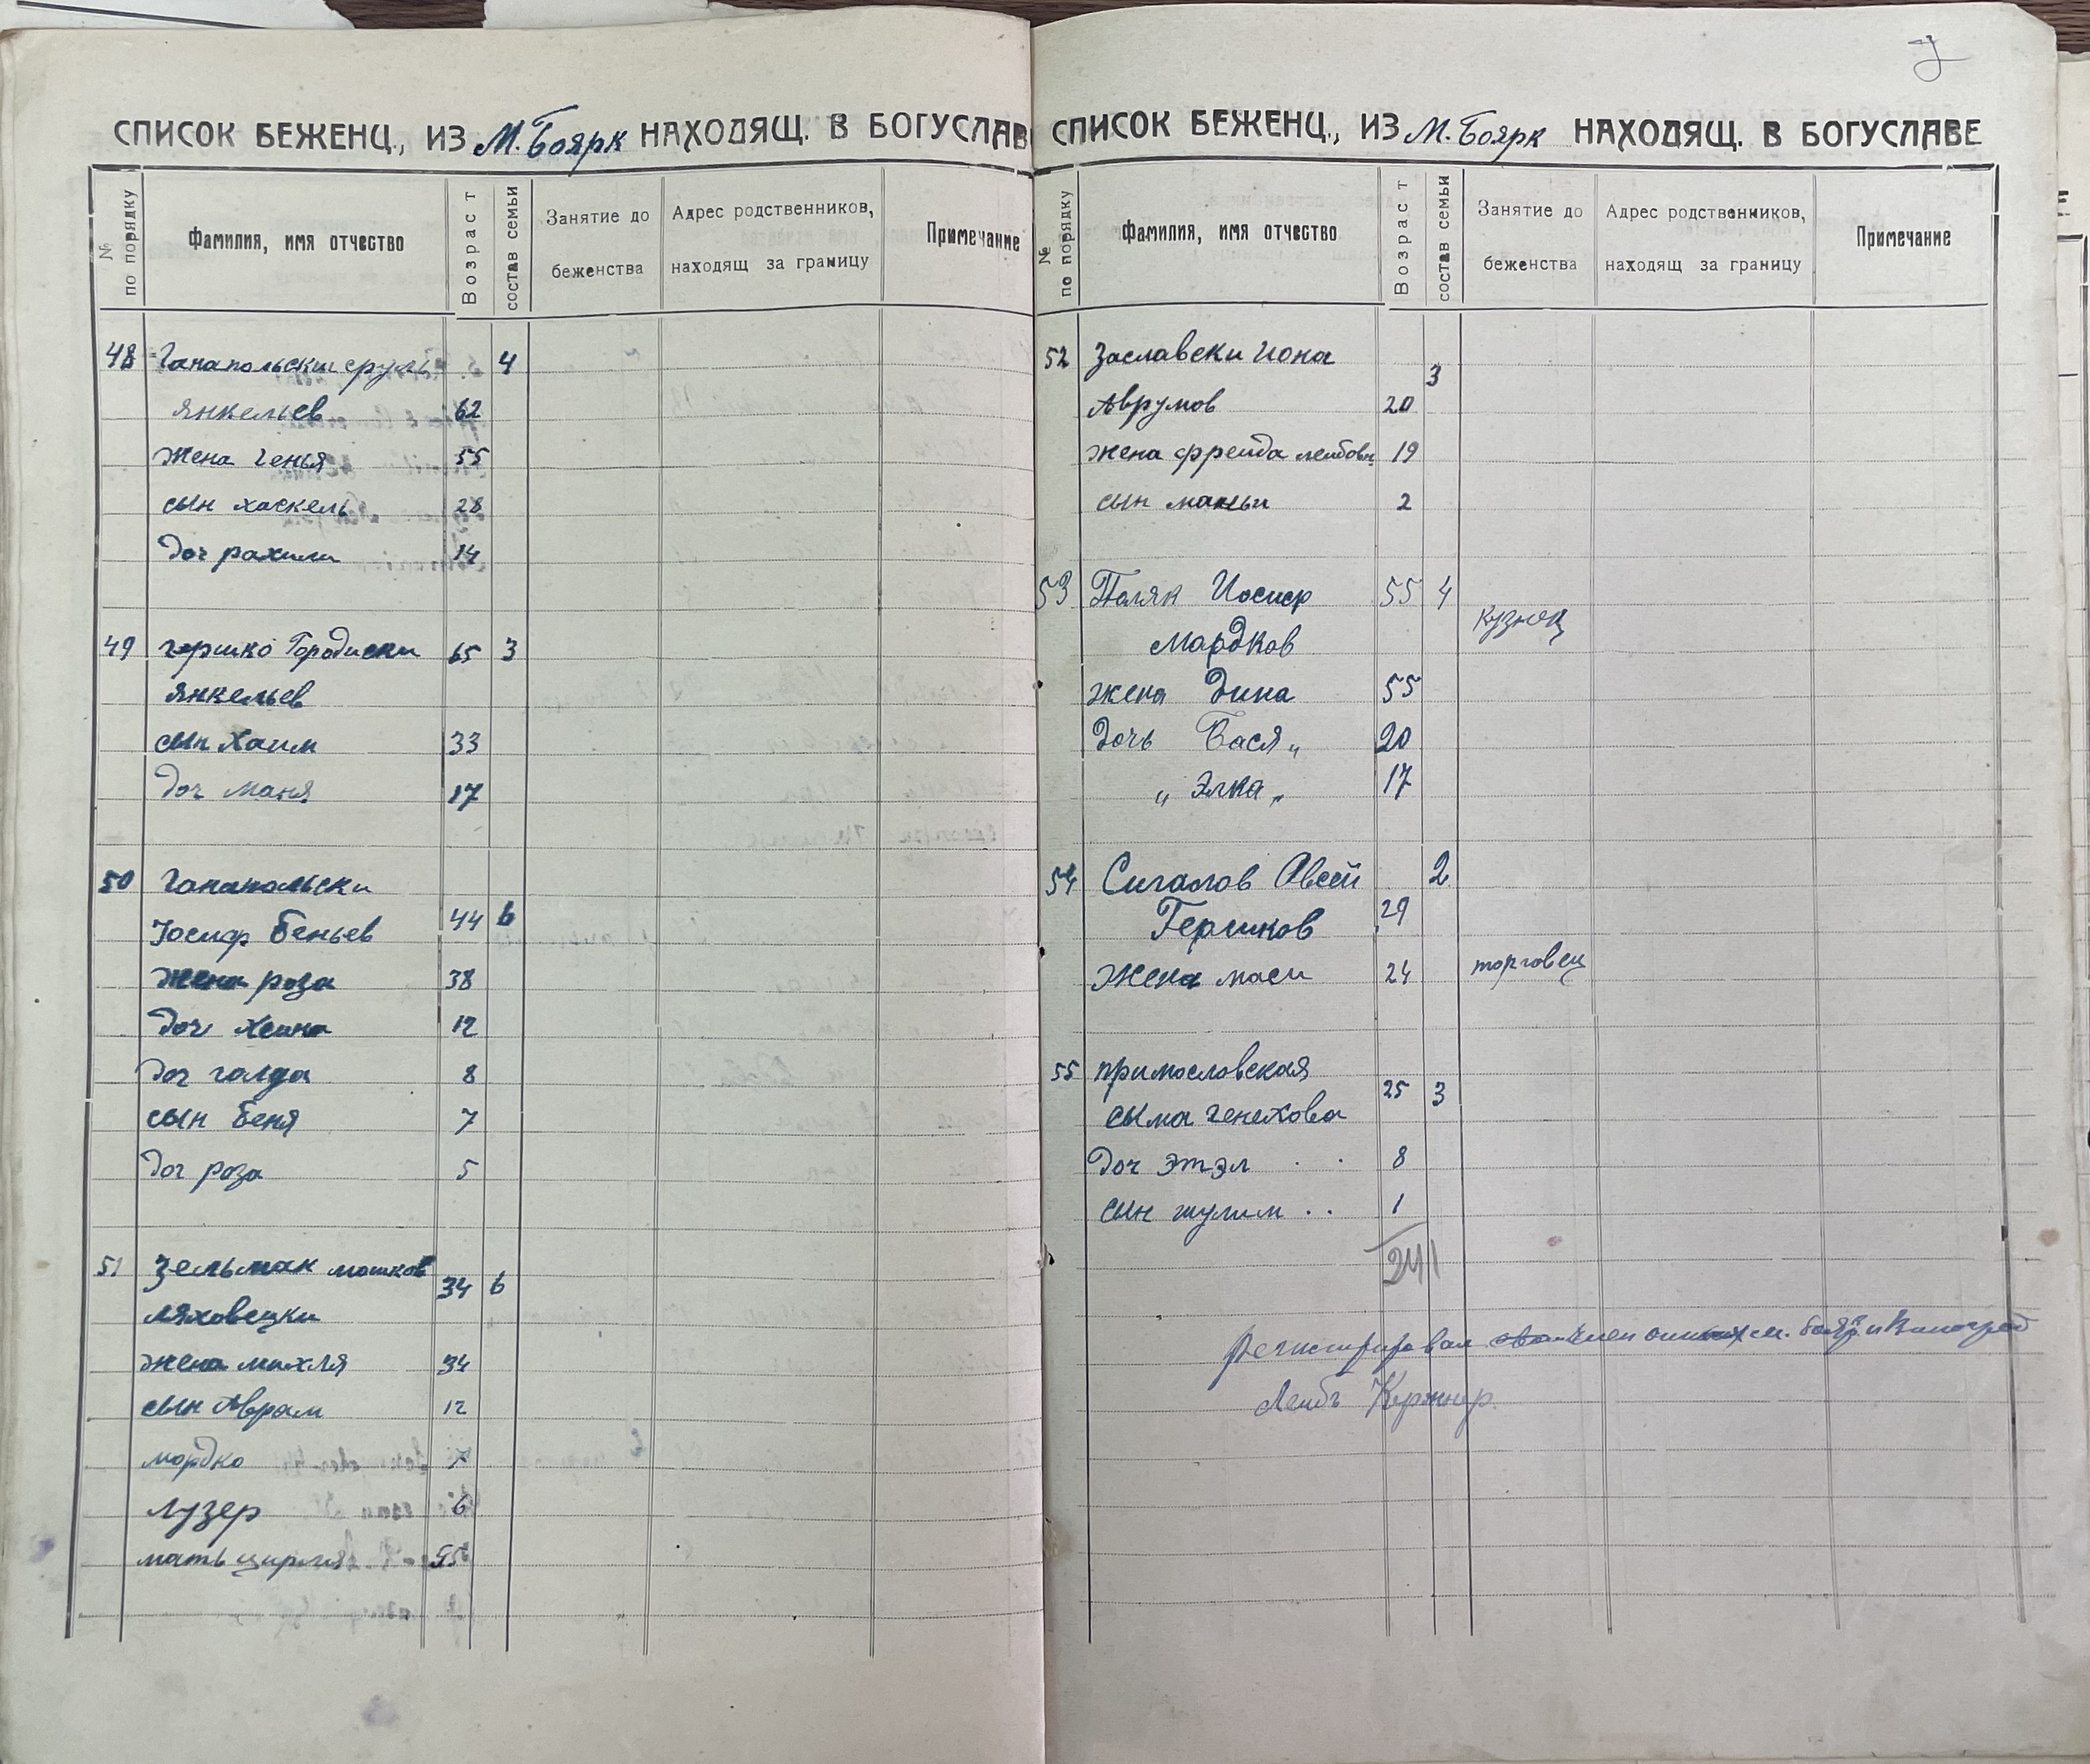 СПИСОК БЕЖЕНЦ., ИЗ М. Боярк НАХОДЯЩ. В БОГУСЛАВ
№ по порядку
Фамилия, имя отчество
Возраст
состав семьи
Занятие до беженства
Адрес родственников, находящ за границу
Примечание
48 Ганапольски сруль 4
янкельев 62
жена генья 55
сын хаскель 28
доч рахили 14
49 гершко Городиски 65 3
янкельев
сын Хаим 33
доч маня 17
50 ганапольски
Иосиф беньев 44 6
жена роза 38
доч хейна 12
доч голда 8
сын беня 7
доч роза 5
51 зельман мошков 34 6
ляховецки
жена михля 34
сын Аврам 12
мордко 7
лузер 6
мать цирля 55
7
СПИСОК БЕЖЕНЦ., ИЗ М. Боярк НАХОДЯЩ. В БОГУСЛАВЕ
№ по порядку
Фамилия, имя отчество
Возраст
состав семьи
Занятие до беженства
Адрес родственников, находящ за границу
Примечание
52 Заславски Иона 3
Аврумов 20
жена фрейда лейбовн 19
сын 2
53 Поляк Иосиф 55 4
Мардков кузнец
жена Дина 55
дочь Бася „ 20
„ Элка „ 17
54 Сигалов Авсей 2
Гершков 29
жена маси 24 торговец
55 примословская 25 3
сыма генехова
доч этэл . . 8
сын шулим . . 1
241
Регистрировал член м. бояр. и Виноград
Лейбъ Кержнер.